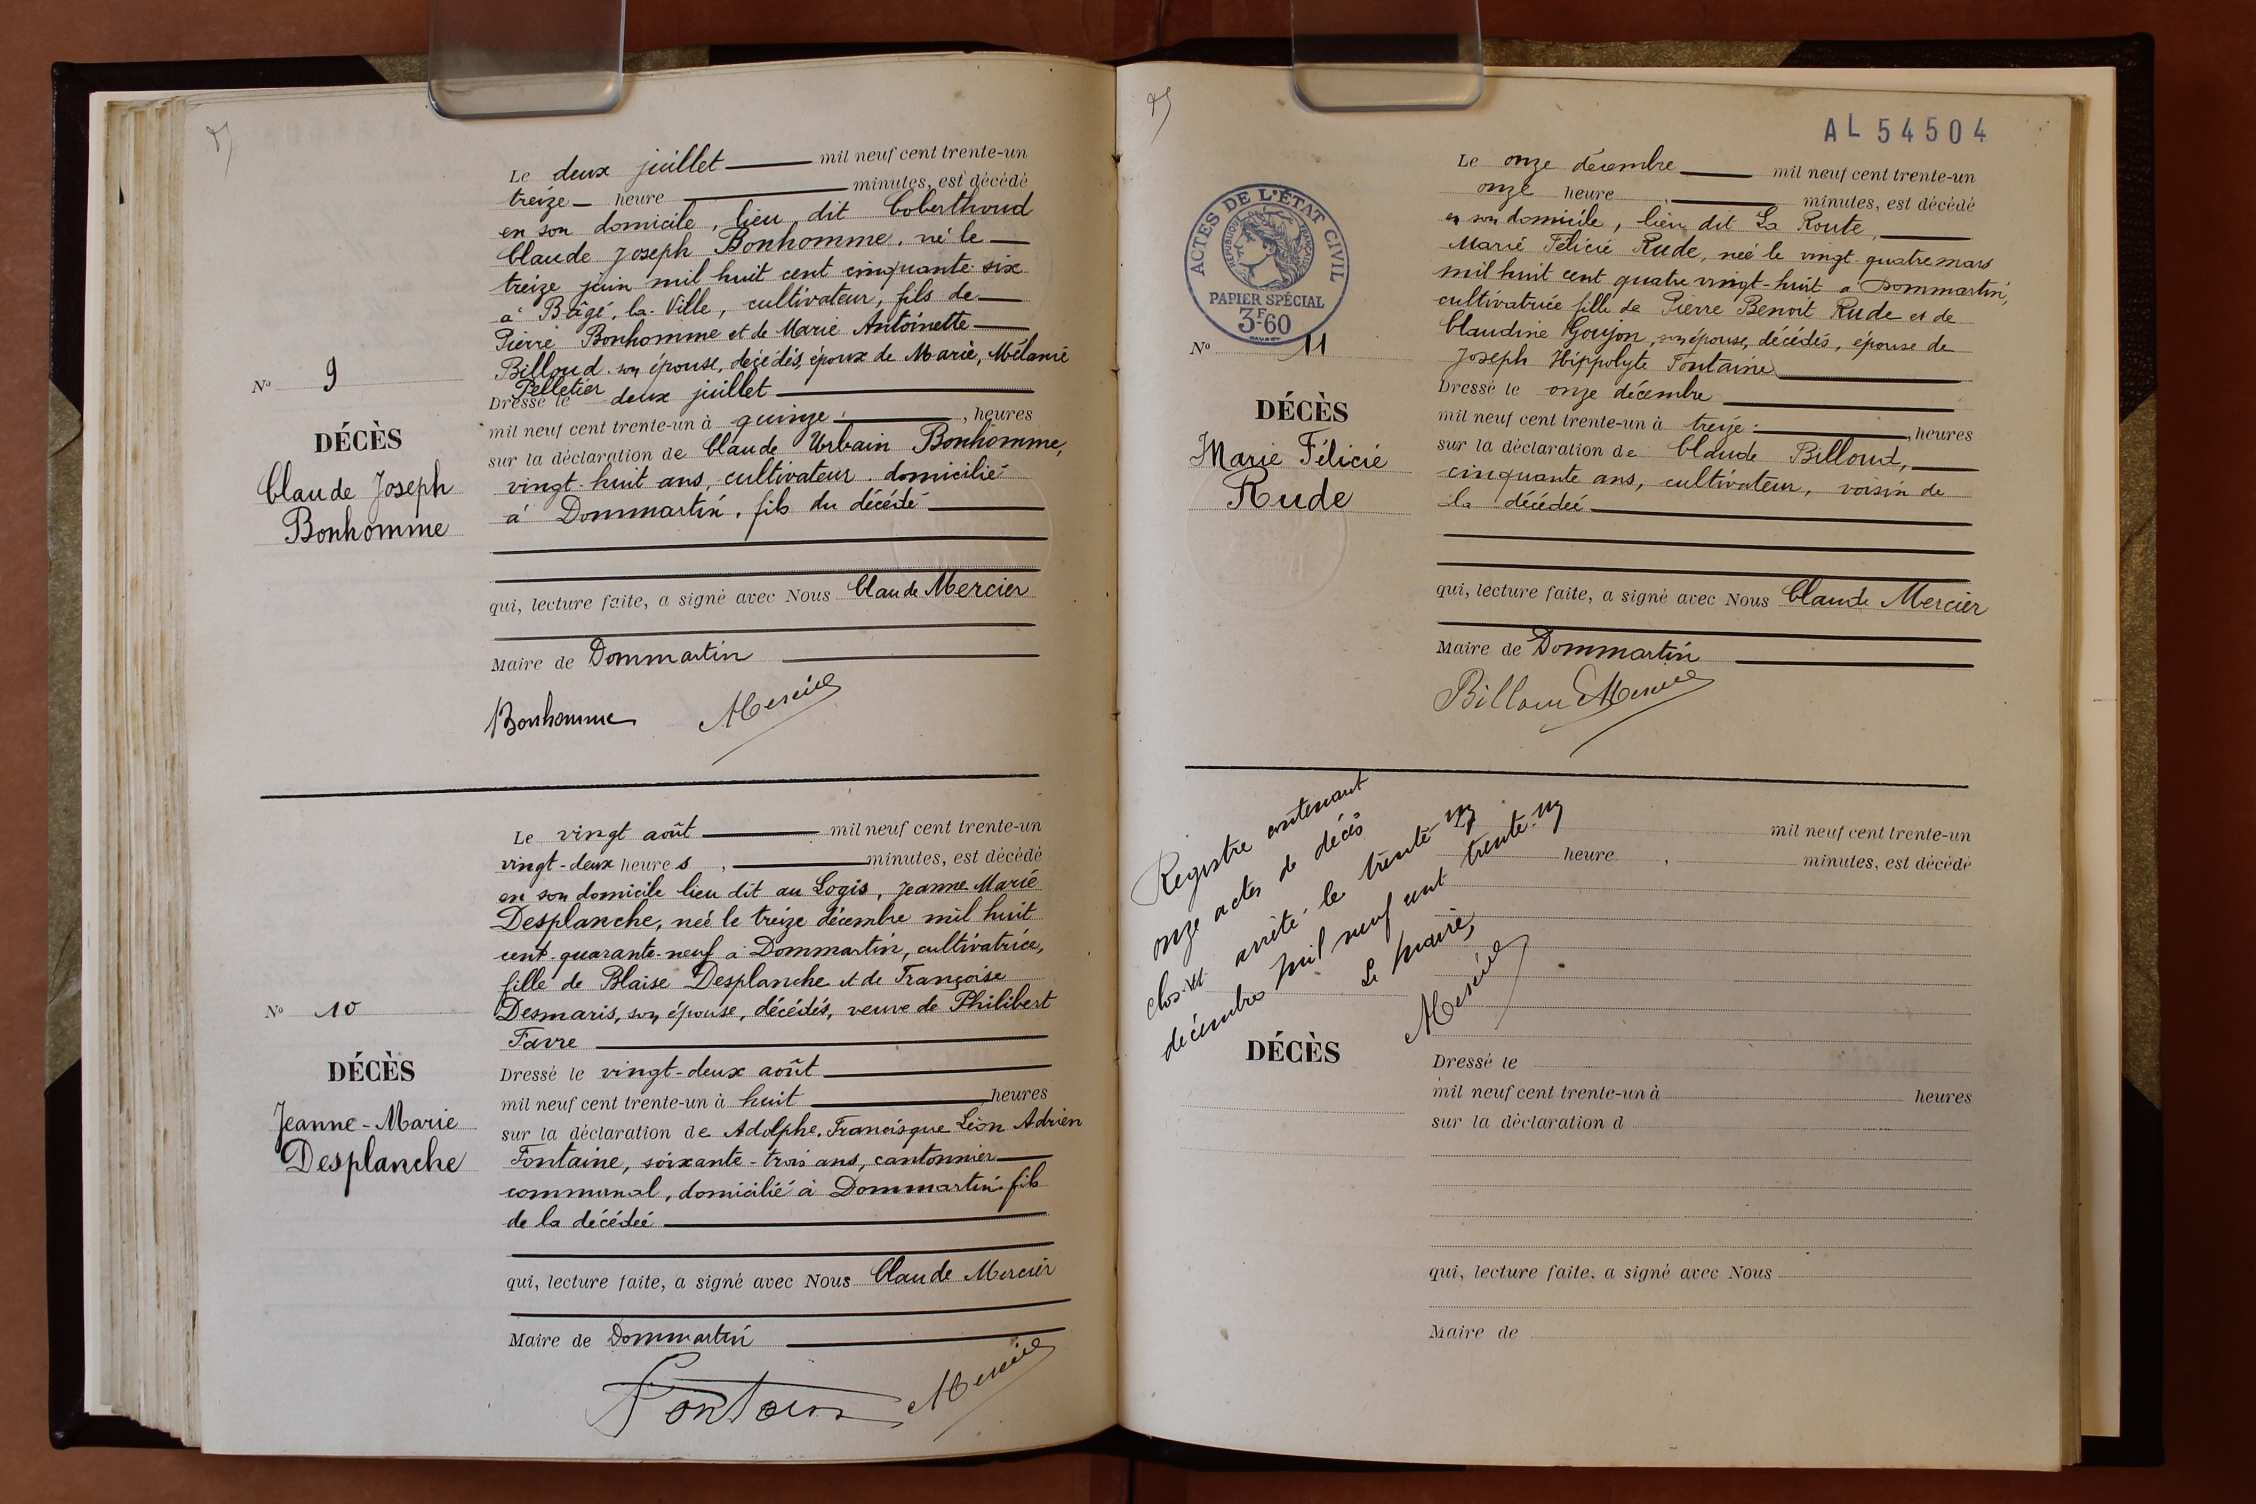 Le deux juillet mil neuf cent trente-un
treize heure minutes, est décédé
en son domicile, lieu dit Coberthoud
Claude Joseph Bonhomme, né le
treize juin mil huit cent cinquante six
à Bâgé-la-Ville, cultivateur, fils de
Pierre Bonhomme et de Marie Antoinette
Billoud son épouse, décédés, époux de Marie, Mélanie
Pelletier
Dressé le deux juillet
mil neuf cent trente-un à quinze heures
sur la déclaration de Claude Urbain Bonhomme,
vingt-huit ans, cultivateur domicilié
à Dommartin, fils du décédé
qui, lecture faite, a signé avec Nous Claude Mercier
Maire de Dommartin
Bonhomme Mercier
No 9
DÉCÈS
Claude Joseph
Bonhomme
Le vingt août mil neuf cent trente-un
vingt-deux heures, minutes, est décédé
en son domicile lieu dit au Logis, Jeanne Marie
Desplanche, née le treize décembre mil huit
cent quarante-neuf à Dommartin, cultivatrice,
fille de Blaise Desplanche et de Françoise
Desmaris, son épouse, décédés, veuve de Philibert
Favre
Dressé le vingt-deux août
mil neuf cent trente-un à huit heures
sur la déclaration de Adolphe, Francisque Léon Adrien
Fontaine, soixante-trois ans, cantonnier
communal, domicilié à Dommartin fils
de la décédée
qui, lecture faite, a signé avec Nous Claude Mercier
Maire de Dommartin
Fontaine Mercier
No 10
DÉCÈS
Jeanne-Marie
Desplanche
AL 54504
ACTES DE L'ÉTAT CIVIL
RÉPUBLIQUE FRANÇAISE
PAPIER SPÉCIAL
3F.60
No 11
DÉCÈS
Marie Félicie
Rude
Le onze décembre mil neuf cent trente-un
onze heure, minutes, est décédé
en son domicile, lieu dit La Route,
Marie Félicie Rude, née le vingt-quatre mars
mil huit cent quatre vingt-huit à Dommartin,
cultivatrice fille de Pierre Benoit Rude et de
Claudine Goujon, son épouse, décédés, épouse de
Joseph Hippolyte Fontaine
Dressé le onze décembre
mil neuf cent trente-un à treize heures
sur la déclaration de Claude Billoud,
cinquante ans, cultivateur, voisin de
la décédée
qui, lecture faite, a signé avec Nous Claude Mercier
Maire de Dommartin
Billoud Mercier
Registre contenant
onze actes de décès
clos et arrêté le trente un
décembre mil neuf cent trente-un
Le Maire,
Mercier
mil neuf cent trente-un
heure, minutes, est décédé
DÉCÈS
Dressé le
mil neuf cent trente-un à heures
sur la déclaration d
qui, lecture faite, a signé avec Nous
Maire de